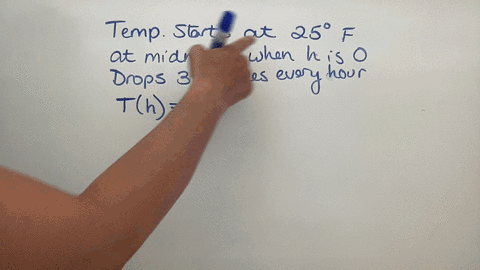 Temp. Starts at 25° F
at when h is 0
Drops 3 every hour
T(h) =